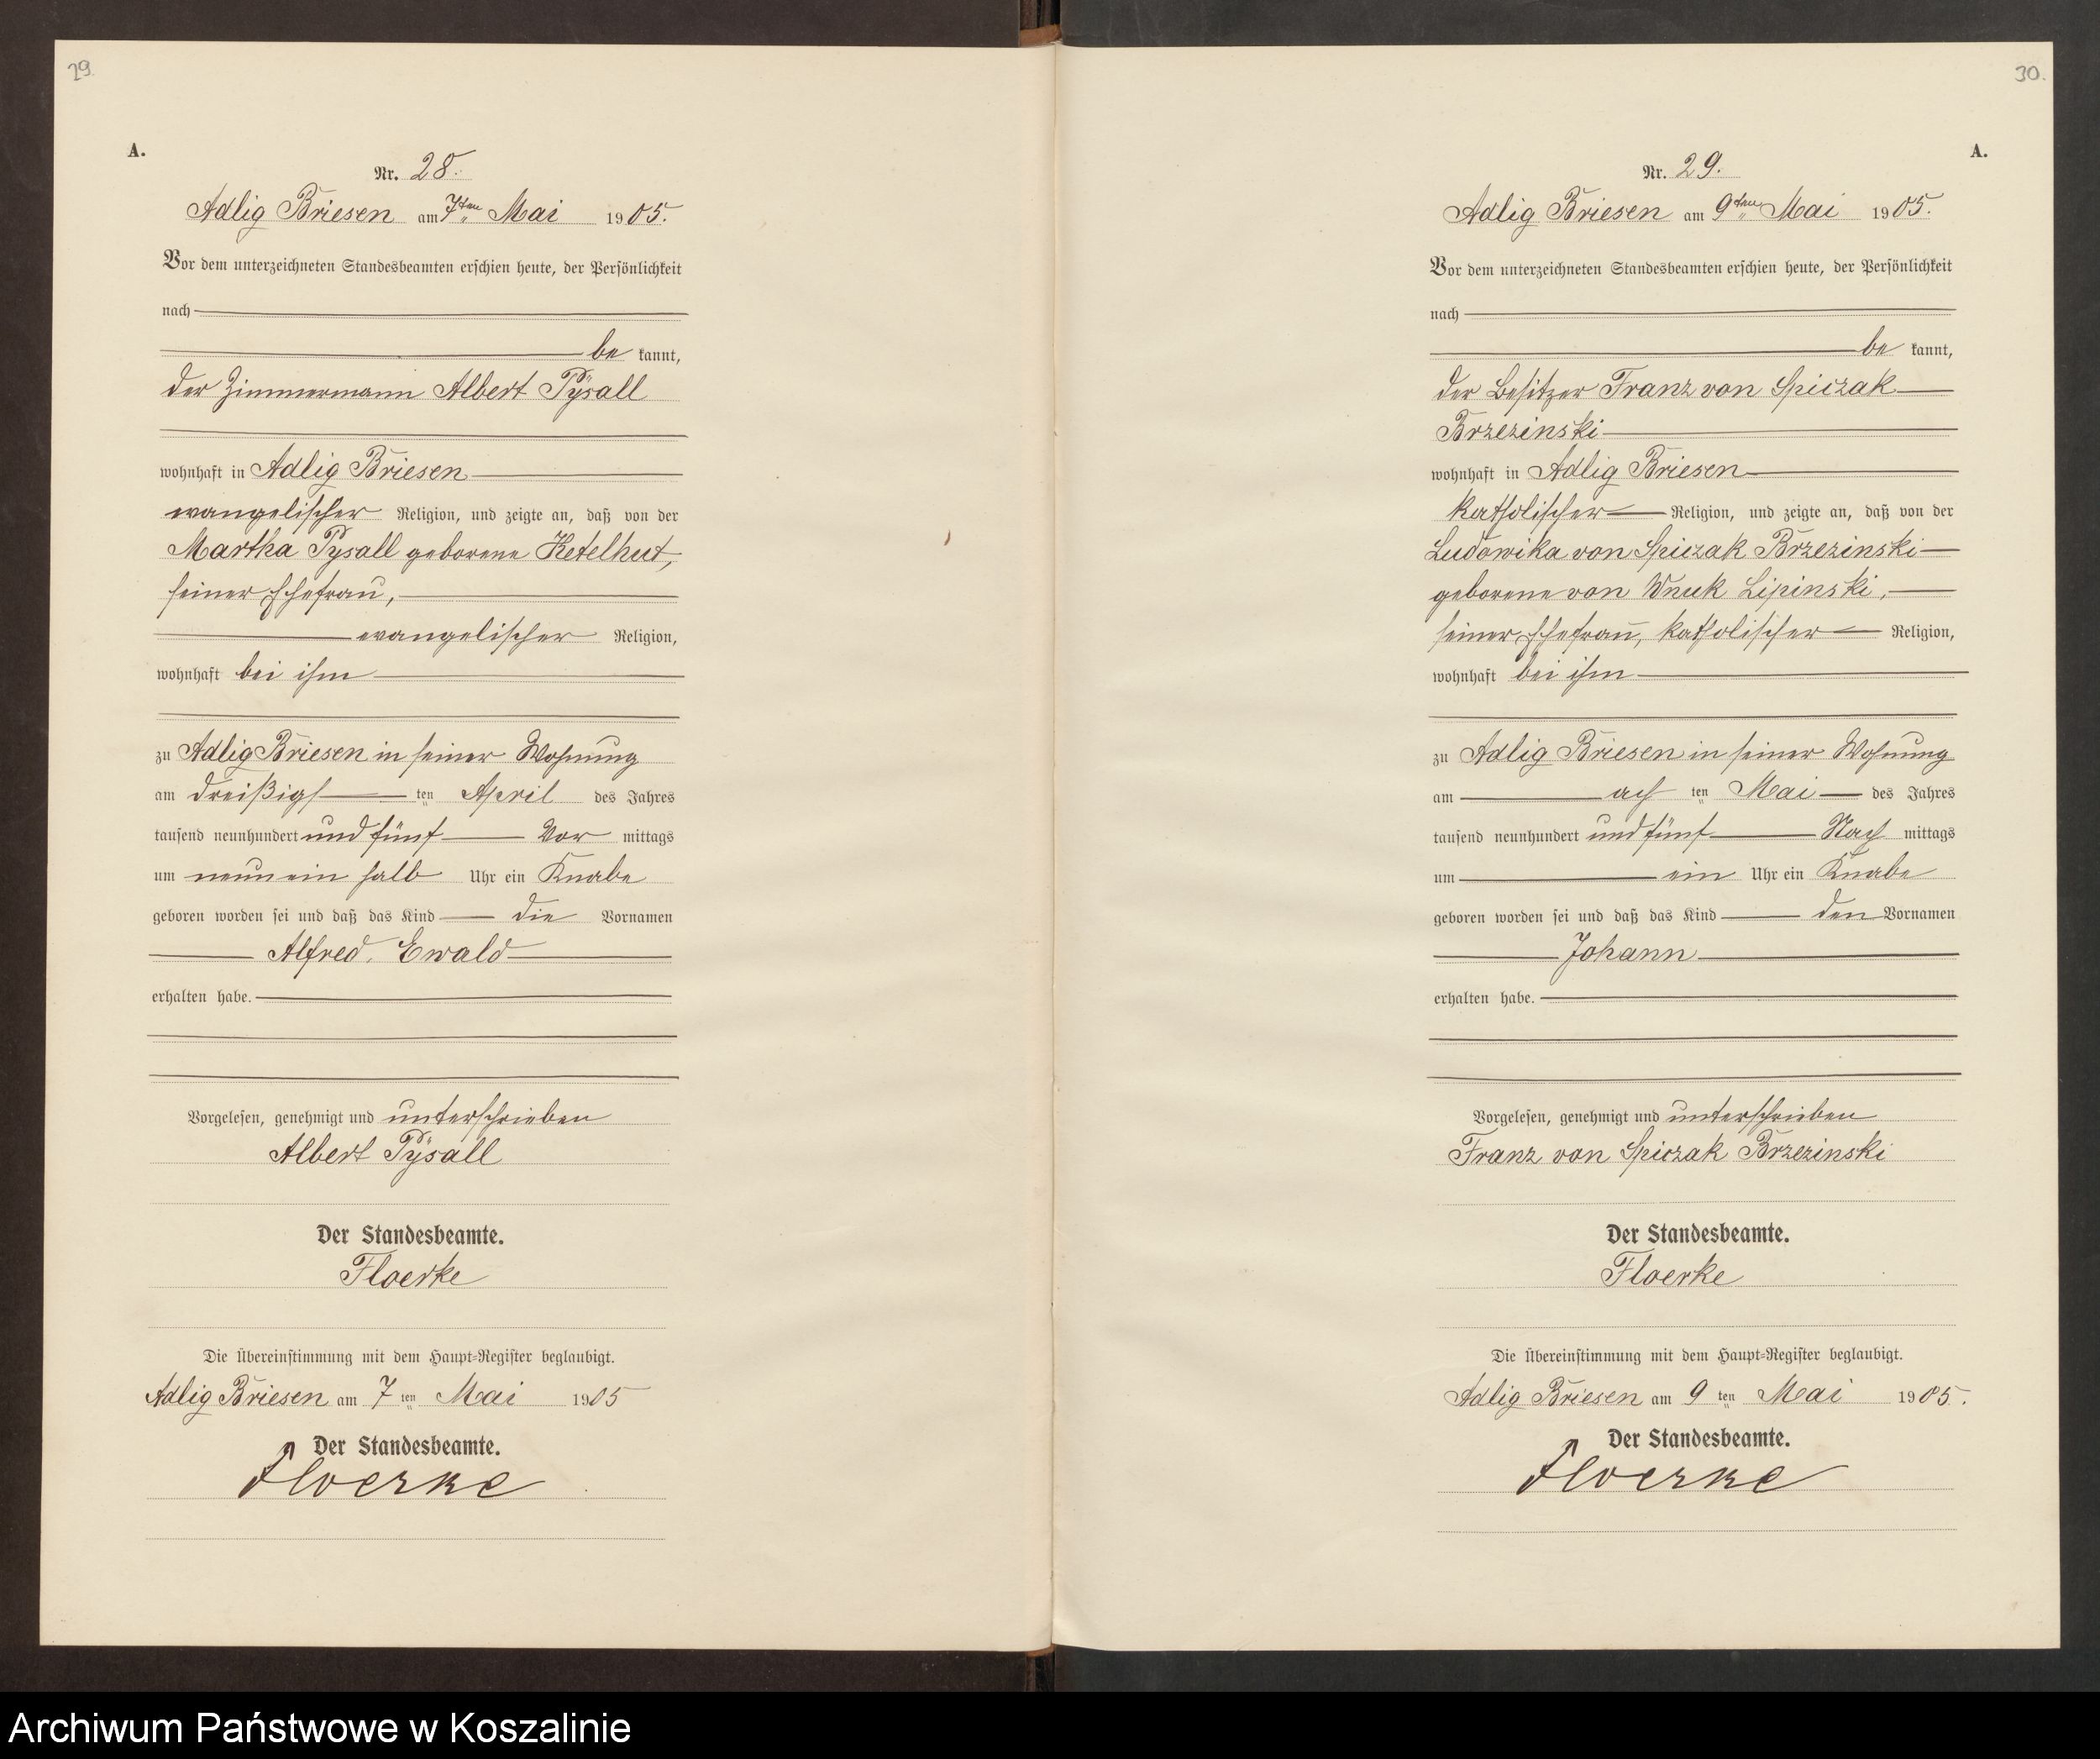 29.
A.
Nr. 28.
Adlig Briesen am 7ten Mai 1905.
Vor dem unterzeichneten Standesbeamten erschien heute, der Persönlichkeit
nach
be kannt,
der Zimmermann Albert Pÿsall
wohnhaft in Adlig Briesen
evangelischer Religion, und zeigte an, daß von der
Martha Pysall geborene Ketelhut,
seiner Ehefrau,
evangelischer Religion,
wohnhaft bei ihm
zu Adlig Briesen in seiner Wohnung
am dreißigs ten April des Jahres
tausend neunhundert und fünf Vor mittags
um neun ein halb Uhr ein Knabe
geboren worden sei und daß das Kind die Vornamen
Alfred, Ewald
erhalten habe.
Vorgelesen, genehmigt und unterschrieben
Albert Pÿsall
Der Standesbeamte.
Floerke
Die Übereinstimmung mit dem Haupt-Register beglaubigt.
Adlig Briesen am 7 ten Mai 1905
Der Standesbeamte.
Floerke
30.
A.
Nr. 29.
Adlig Briesen am 9ten Mai 1905.
Vor dem unterzeichneten Standesbeamten erschien heute, der Persönlichkeit
nach
be kannt,
der Besitzer Franz von Spiczak
Brzezinski
wohnhaft in Adlig Briesen
katholischer Religion, und zeigte an, daß von der
Ludowika von Spiczak Brzezinski
geborene von Wnuk Lipinski,
seiner Ehefrau, katholischer Religion,
wohnhaft bei ihm
zu Adlig Briesen in seiner Wohnung
am ach ten Mai des Jahres
tausend neunhundert und fünf Nach mittags
um ein Uhr ein Knabe
geboren worden sei und daß das Kind den Vornamen
Johann
erhalten habe.
Vorgelesen, genehmigt und unterschrieben
Franz von Spiczak Brzezinski
Der Standesbeamte.
Floerke
Die Übereinstimmung mit dem Haupt-Register beglaubigt.
Adlig Briesen am 9 ten Mai 1905.
Der Standesbeamte.
Floerke
Archiwum Państwowe w Koszalinie